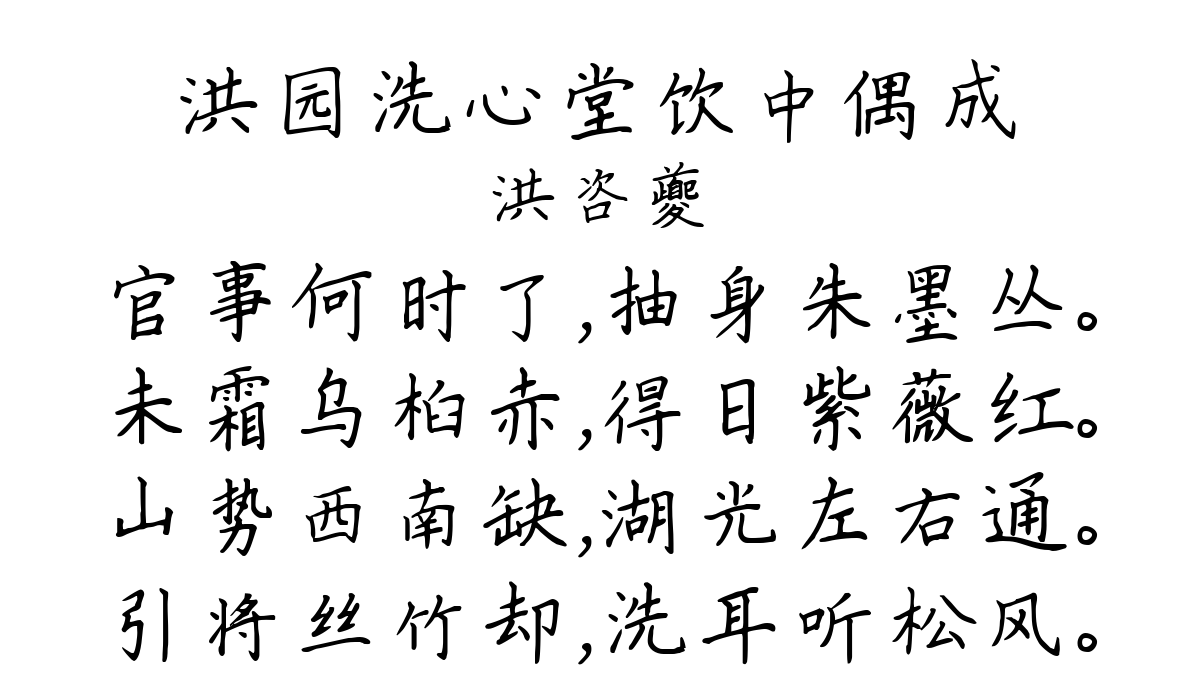 洪园洗心堂饮中偶成
洪咨夔
官事何时了,抽身朱墨丛。
未霜乌桕赤,得日紫薇红。
山势西南缺,湖光左右通。
引将丝竹却,洗耳听松风。